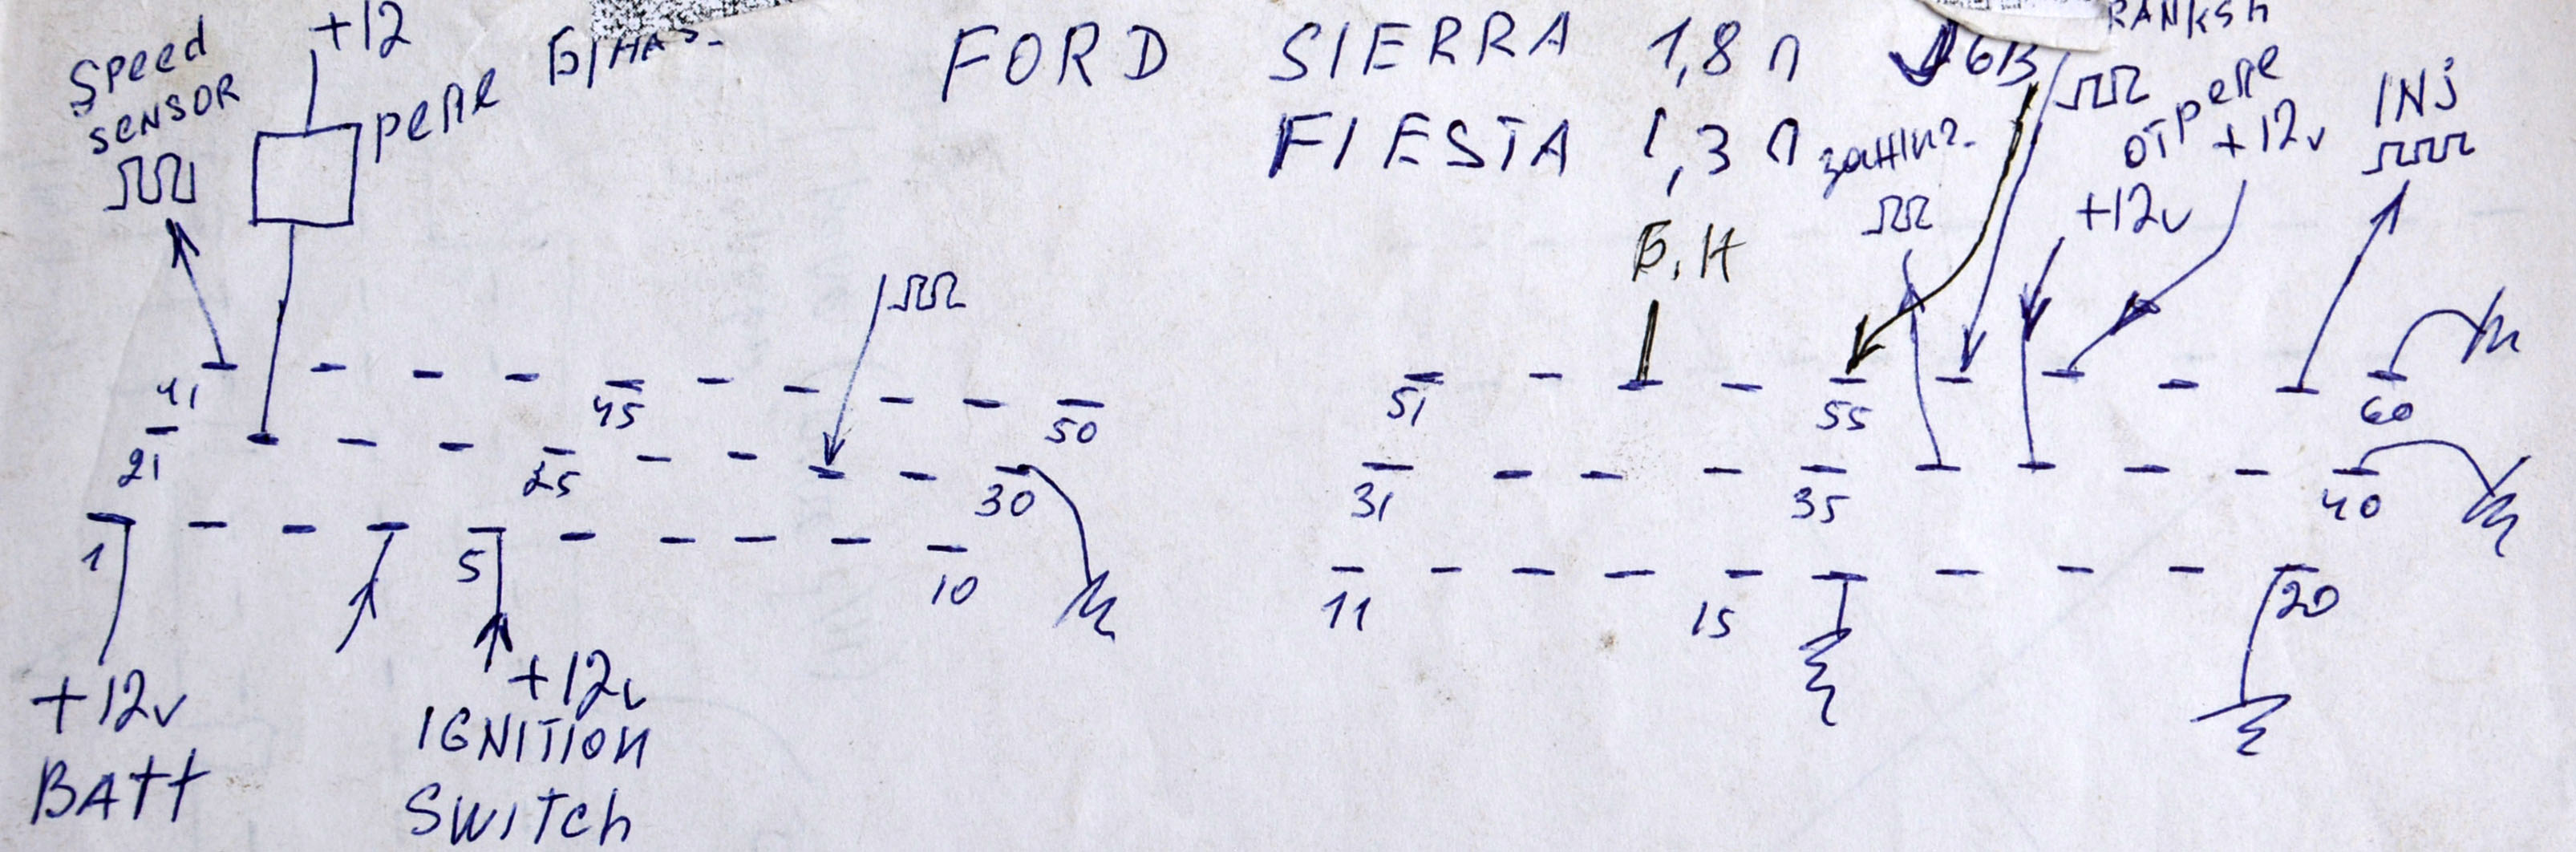 Speed
SENSOR
+12
реле
Б/НАС.
FORD SIERRA 1,8л
FIESTA 1,3л
зажиг.
RANKSh
от реле
+12v
+12v
INj
Б.Н
41 45 50
51 55 60
21 25 30
31 35 40
1 5 10
11 15 20
+12v
BATT
+12v
IGNITION
SWITCH